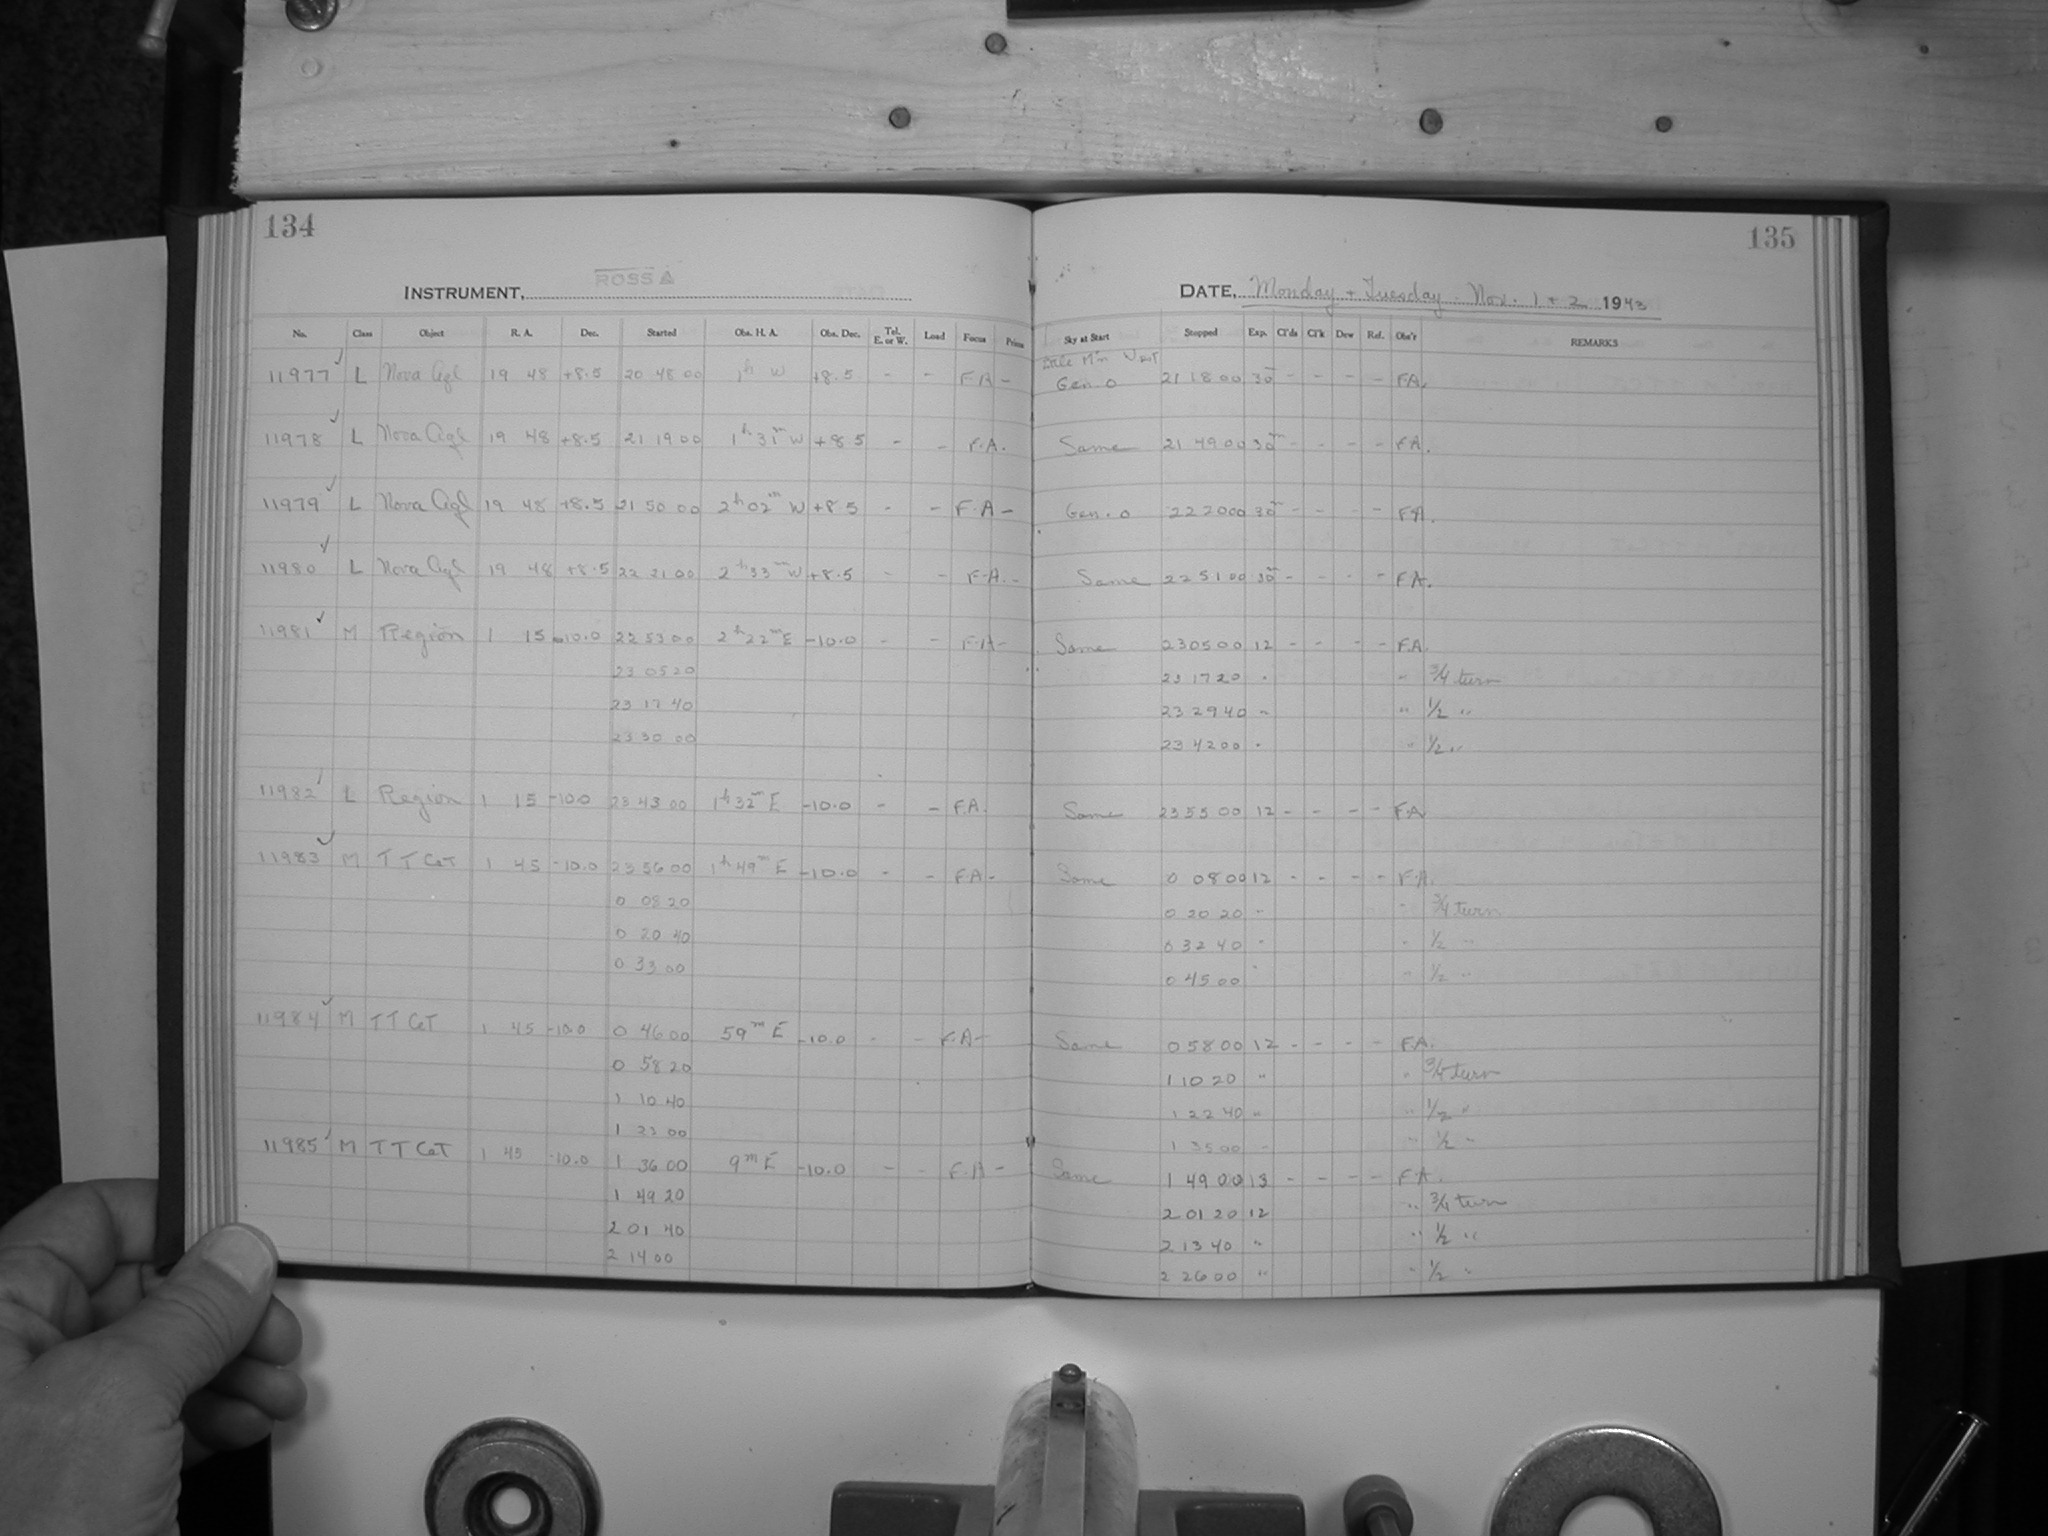 134
INSTRUMENT, ROSS
No. Class Object R. A. Dec. Started Obs. H. A. Obs. Dec. Tel. E. or W. Load Focus Prism
11977 ✓ L Nova Aql 19 48 +8.5 20 48 00 1h W +8.5 - - F A -
11978 ✓ L Nova Aql 19 48 +8.5 21 19 00 1h 31m W +8.5 - - F.A.
11979 ✓ L Nova Aql 19 48 +8.5 21 50 00 2h 02m W +8.5 - - F.A -
11980 ✓ L Nova Aql 19 48 +8.5 22 21 00 2h 33m W +8.5 - - F.A. -
11981 ✓ M Region 1 15 -10.0 22 53 00 2h 22m E -10.0 - - F.A -
23 05 20
23 17 40
23 30 00
11982 ✓ L Region 1 15 -10.0 23 43 00 1h 32m E -10.0 - - F.A.
11983 ✓ M TT Cet 1 45 -10.0 23 56 00 1h 49m E -10.0 - - F.A -
0 08 20
0 20 40
0 33 00
11984 ✓ M TT Cet 1 45 -10.0 0 46 00 59m E -10.0 - - F.A -
0 58 20
1 10 40
1 23 00
11985 ✓ M TT Cet 1 45 -10.0 1 36 00 9m E -10.0 - - F.A -
1 49 20
2 01 40
2 14 00
135
DATE, Monday + Tuesday. Nov. 1 + 2 1943
Sky at Start Stopped Exp. Cl'ds Cl'k Dew Ref. Obs'r REMARKS
Gen. 0 21 18 00 30m - - - - F.A.
Same 21 49 00 30m - - - - F.A.
Gen. 0 22 20 00 30m - - - - F.A.
Same 22 51 00 30m - - - - F.A.
Same 23 05 00 12 - - - - F.A.
23 17 20 " " 3/4 turn
23 29 40 " " 1/2 "
23 42 00 " " 1/2 "
Same 23 55 00 12 - - - - F.A.
Same 0 08 00 12 - - - - F.A.
0 20 20 " " 3/4 turn
0 32 40 " " 1/2 "
0 45 00 " " 1/2 "
Same 0 58 00 12 - - - - F.A.
1 10 20 " " 3/4 turn
1 22 40 " " 1/2 "
1 35 00 " " 1/2 "
Same 1 49 00 13 - - - - F.A.
2 01 20 12 " 3/4 turn
2 13 40 " " 1/2 "
2 26 00 " " 1/2 "